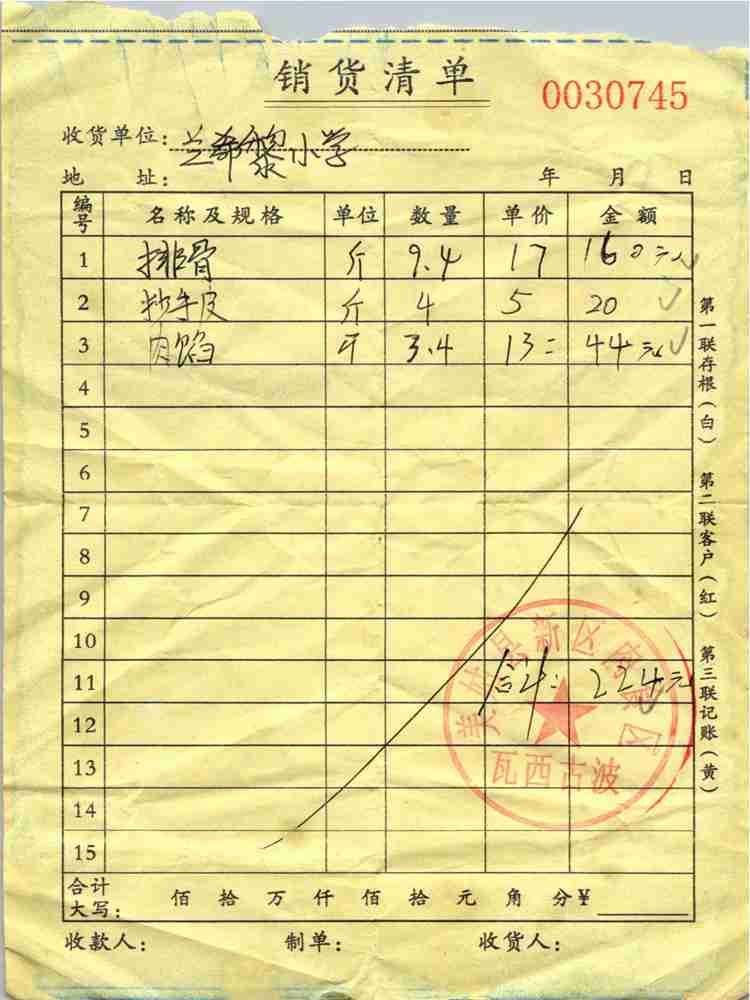 销货清单
0030745
收货单位：兰都黎小学
地 址： 年 月 日
编号 名称及规格 单位 数量 单价 金额
1 排骨 斤 9.4 17 160元
2 抄手皮 斤 4 5 20
3 肉馅 斤 3.4 13= 44元
4
5
6
7
8
9
10
11 合计: 224元
12
13
14
15
合计大写： 佰 拾 万 仟 佰 拾 元 角 分 ¥
收款人： 制单： 收货人：
第一联存根（白） 第二联客户（红） 第三联记账（黄）
美姑县新区
瓦西古波